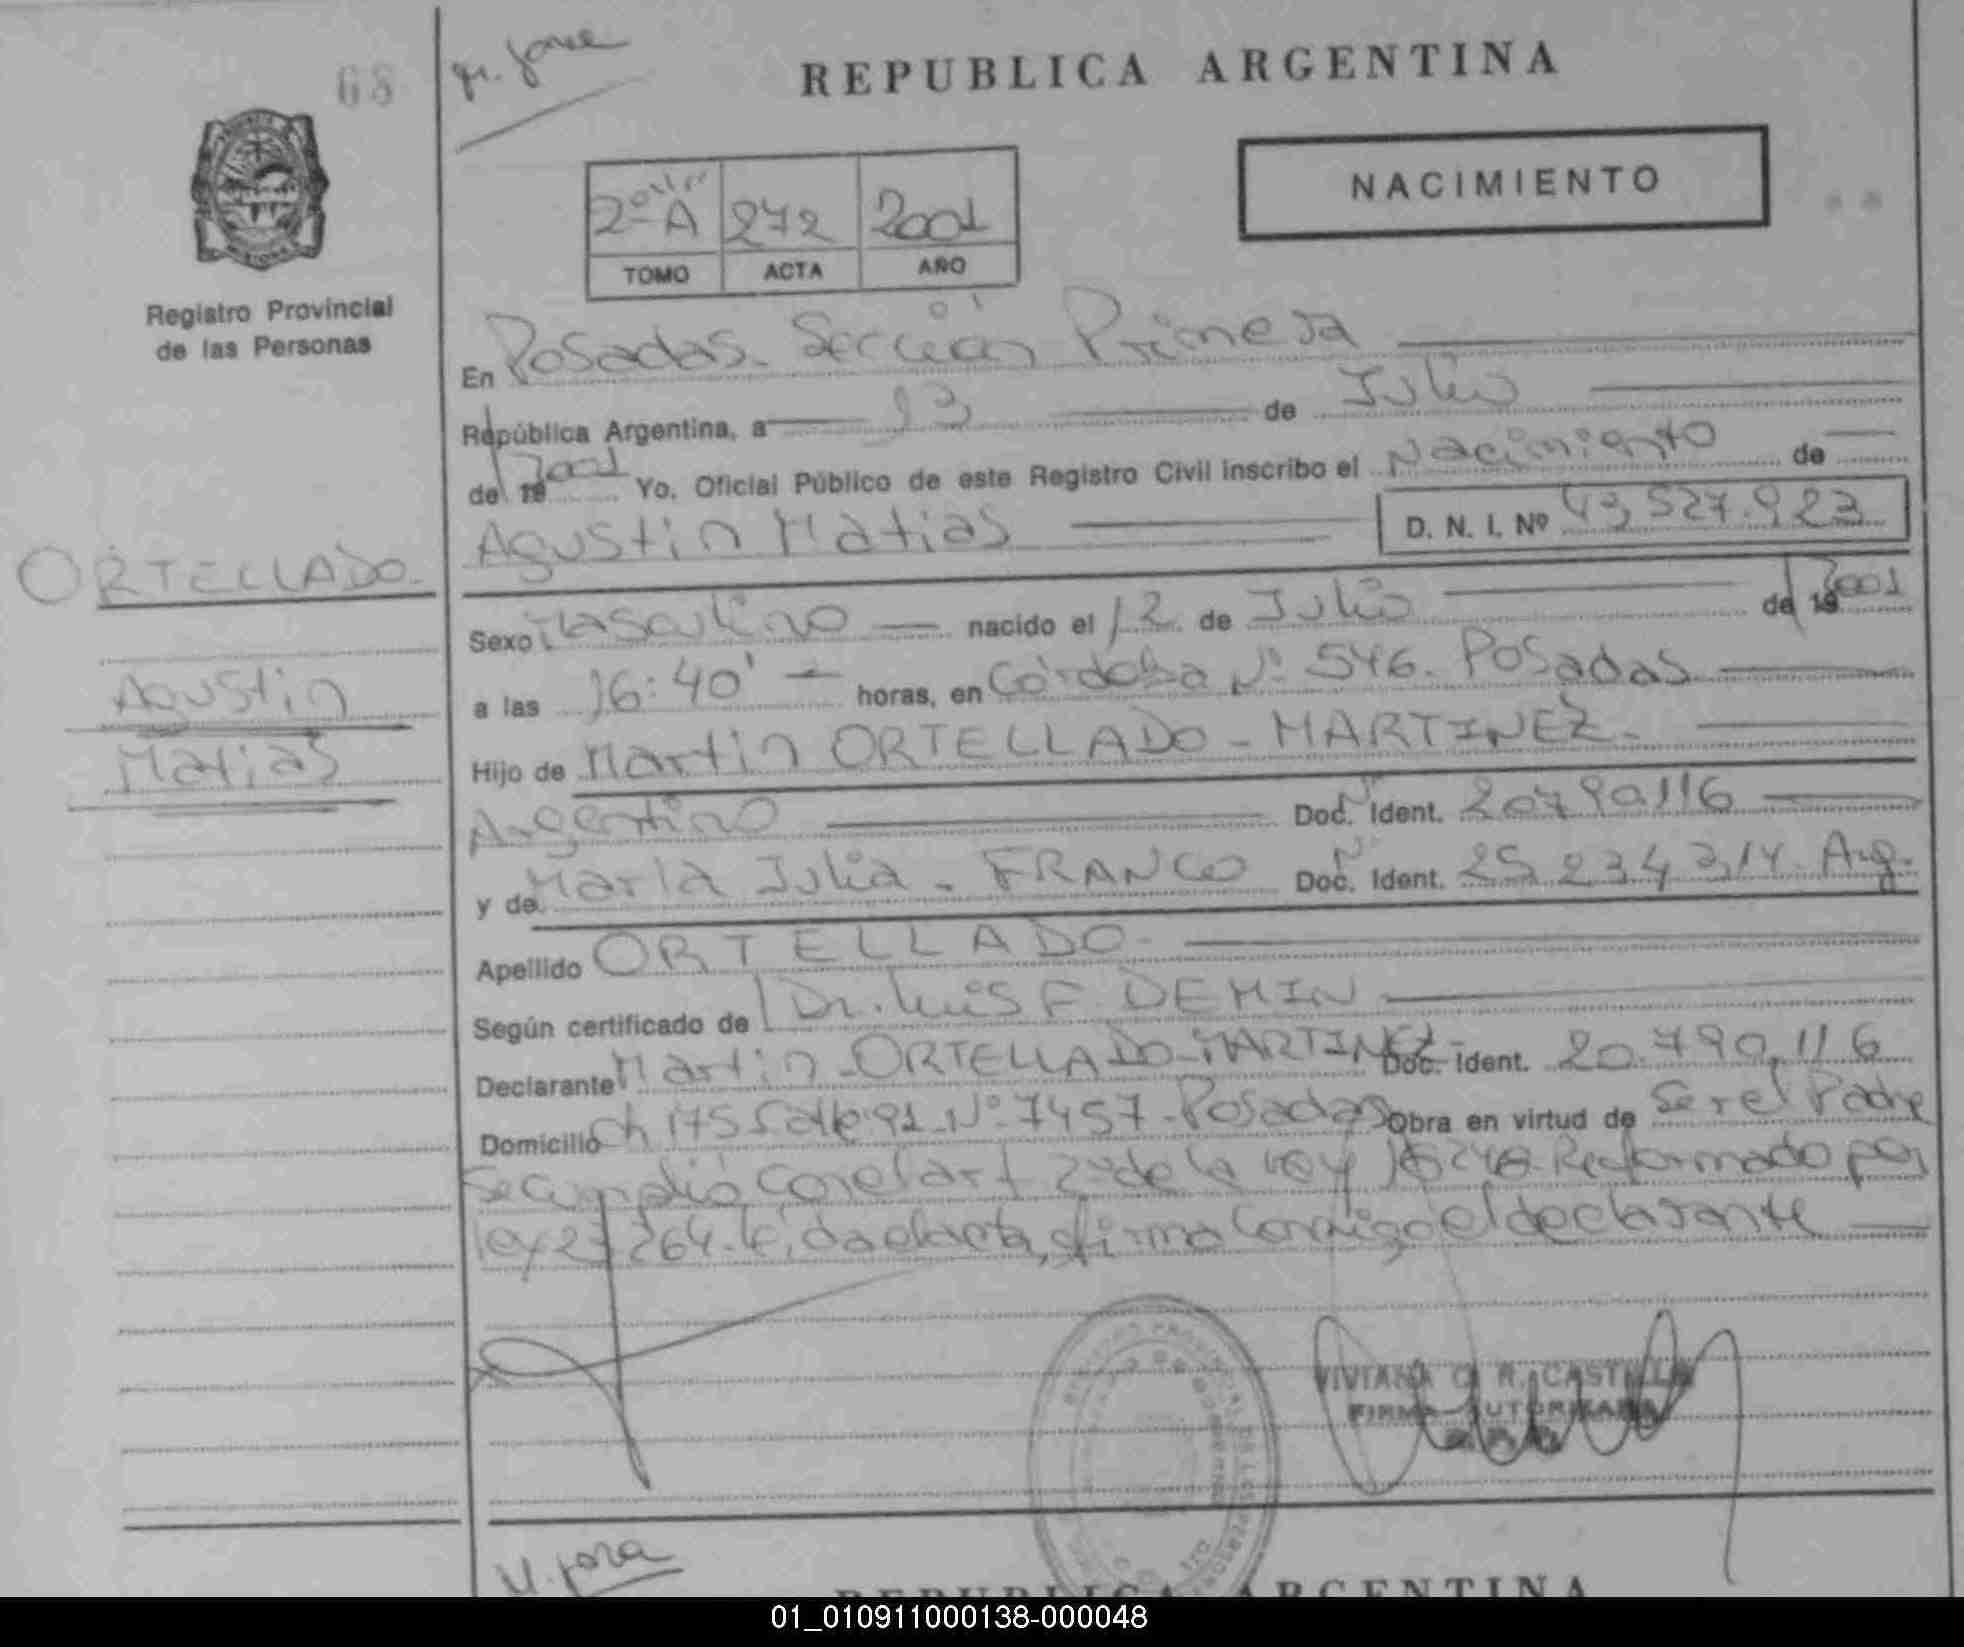 68
REPUBLICA ARGENTINA
NACIMIENTO
2º A 272 2001
TOMO ACTA AÑO
Registro Provincial
de las Personas
En Posadas. Sección Primera
República Argentina, a 13 de Julio
de 19 2001 Yo, Oficial Público de este Registro Civil inscribo el Nacimiento de
Agustin Matias D. N. I. Nº 43,527.923
ORTELLADO.
Agustin
Matias
Sexo Masculino nacido el 12 de Julio de 19 2001
a las 16:40' horas, en Córdoba Nº 546. Posadas
Hijo de Martin ORTELLADO - MARTINEZ.
Argentino Doc. Ident. Nº 20790116
y de Maria Julia - FRANCO Doc. Ident. Nº 25 234 314 Arg.
Apellido ORTELLADO.
Según certificado de Dr. Luis F. DEMIN
Declarante Martin ORTELLADO - MARTINEZ Doc. Ident. 20.790,116
Domicilio Ch 175 Calle 91 Nº 7457 - Posadas Obra en virtud de Ser el Padre
Se cumplió con el art 2º de la Ley 18248 Reformado por
ley 23264. Leida el acta, firma conmigo el declarante
VIVIANA R. CASTILLO
FIRMA AUTORIZADA
REPUBLICA ARGENTINA
01_010911000138-000048